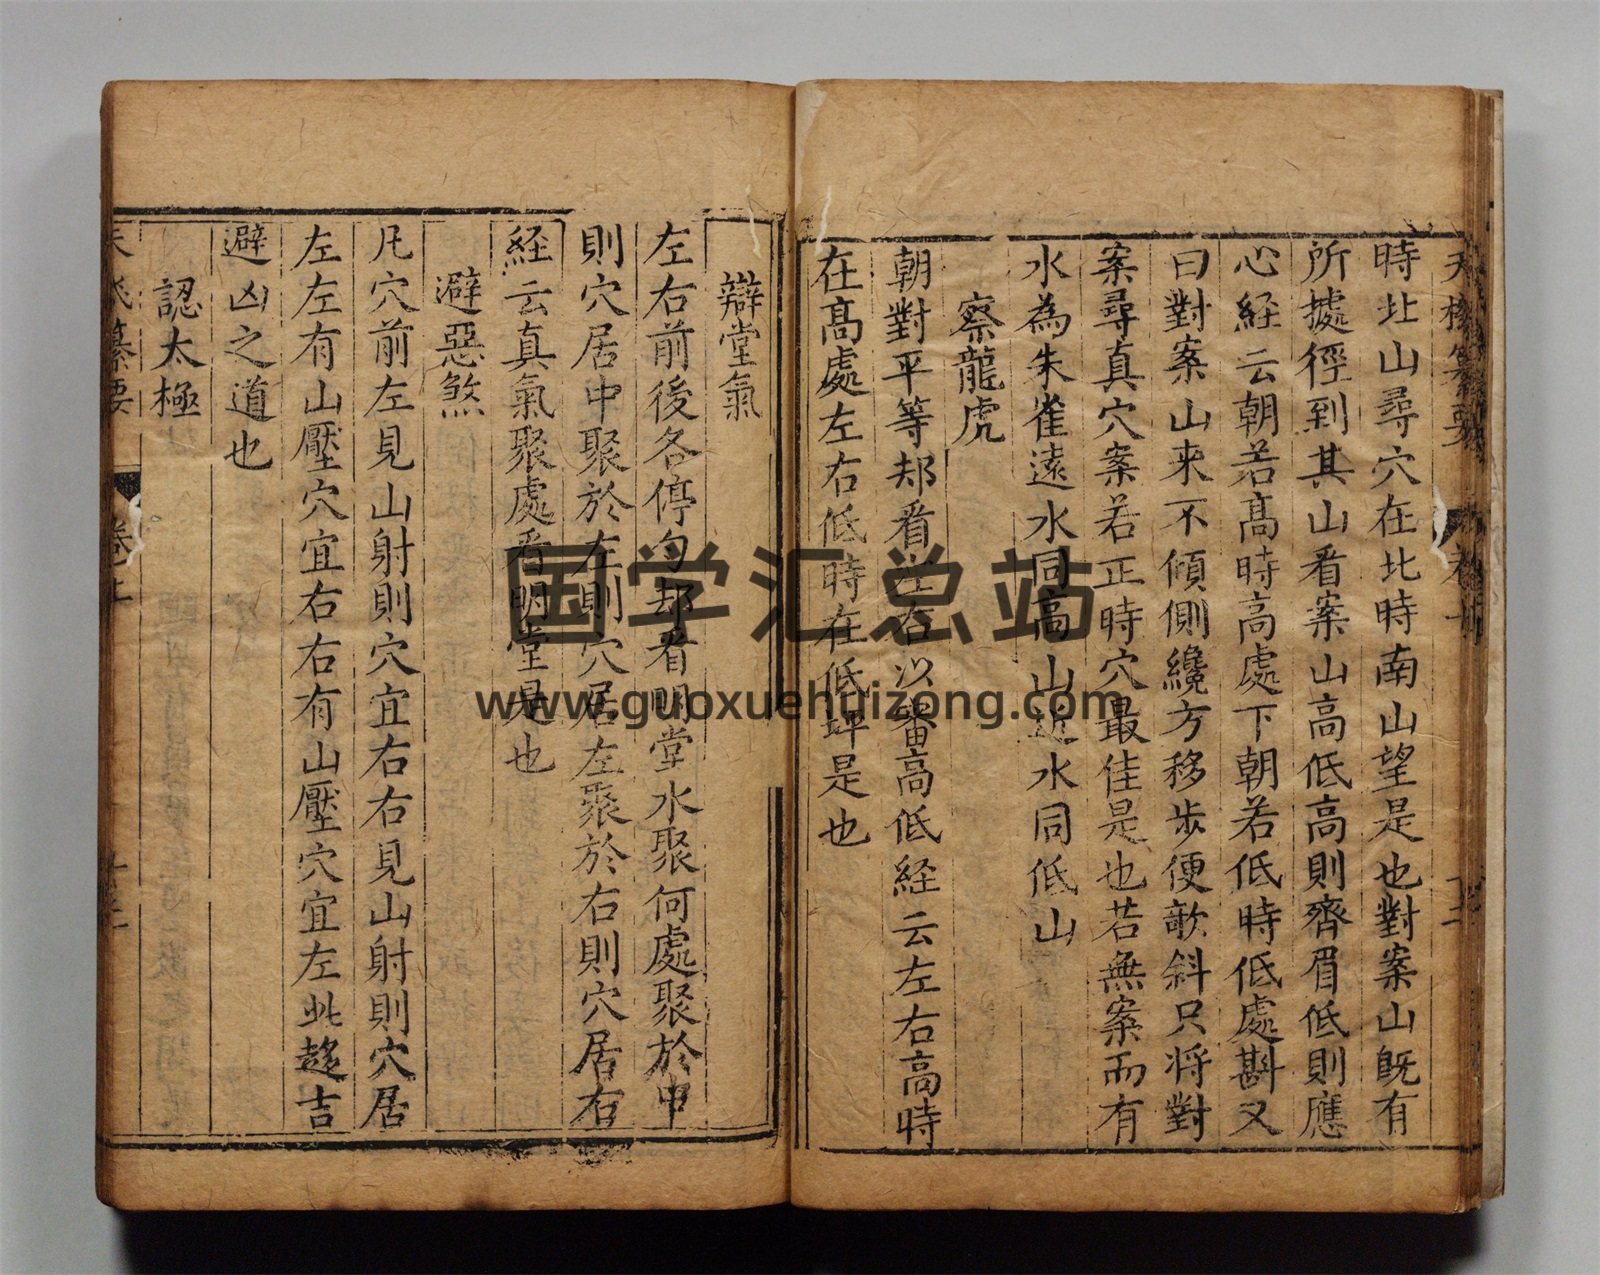 時北山尋穴在北時南山望是也對案山既有
所㨿徑到其山看案山高低高則齊眉低則應
心経云朝若髙時高處下朝若低時低處斟又
曰對案山来不傾側纔方移步便欹斜只将對
案尋真穴案若正時穴最佳是也若無案而有
水為朱雀遠水同高山近水同低山
察龍虎
朝對平等却看左右以審高低経云左右高時
在髙處左右低時在低坪是也
辯堂氣
左右前後各停勻却看明堂水聚何處聚於中
則穴居中聚於左則穴居左聚於右則穴居右
経云真氣聚處看明堂是也
避惡煞
凡穴前左見山射則穴宜右右見山射則穴居
左左有山壓穴宜右右有山壓穴宜左此趨吉
避凶之道也
認太極
国学汇总站
www.guoxuehuizong.com